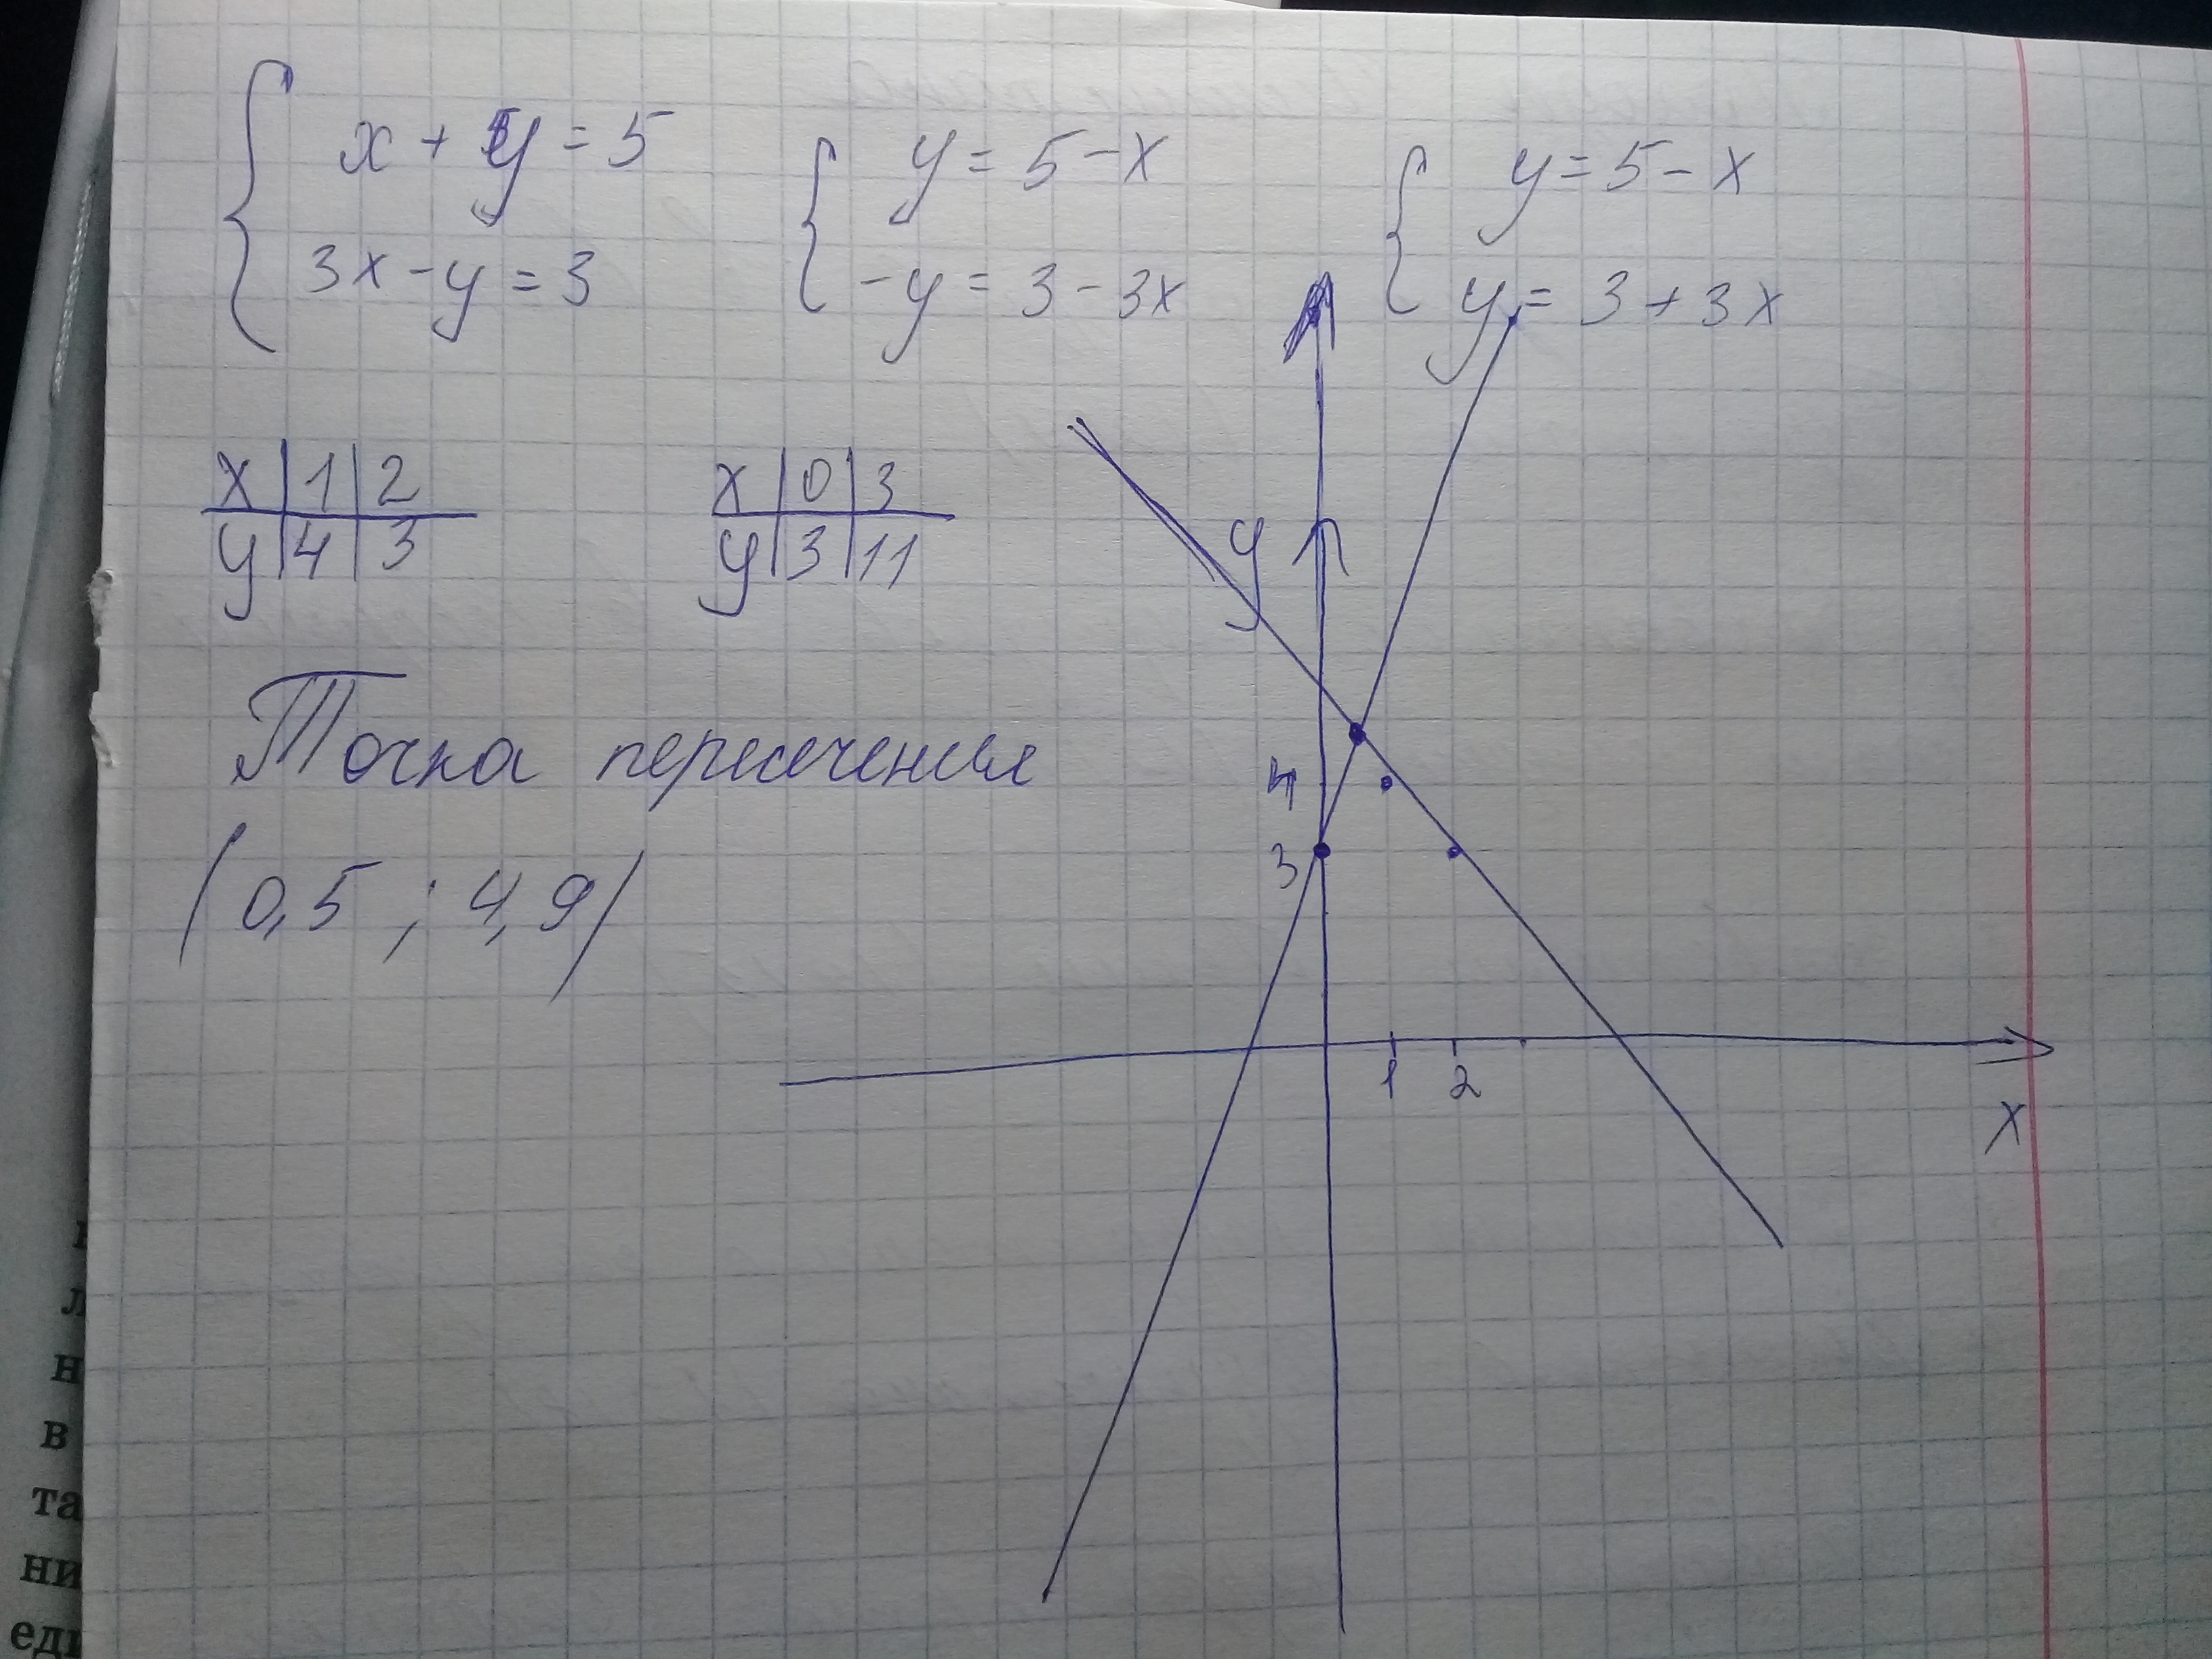 x + y = 5
3x - y = 3
y = 5 - x
-y = 3 - 3x
y = 5 - x
y = 3 + 3x
x | 1 | 2
y | 4 | 3
x | 0 | 3
y | 3 | 11
Точка пересечения
(0,5 ; 4,9)
y
4
3
1 2
x
л
н
в
та
ни
еди